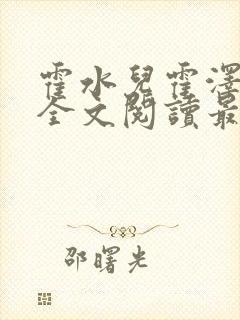 霍水兒霍澤
全文閱讀最
邵曙光